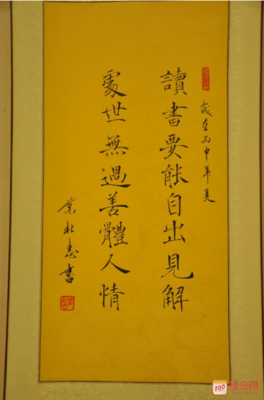 歲在丙申年夏
讀書要能自出見解
處世無過善體人情
書